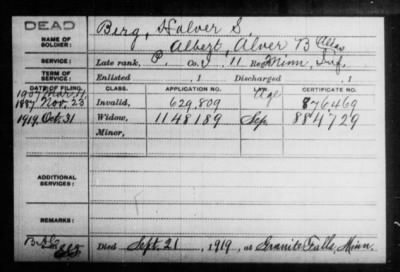 DEAD
NAME OF SOLDIER: Berg, Halver S.
Albert, Alver B Alias
SERVICE: Late rank, P. Co. 11 Reg't Minn. Inf.
TERM OF SERVICE: Enlisted , 1 Discharged , 1
DATE OF FILING. CLASS. APPLICATION NO. CERTIFICATE NO.
1907 Mar. 11 Age
1887 Nov. 23 Invalid, 629,809 876469
1919 Oct. 31 Widow, 1148189 Sep 884729
Minor,
ADDITIONAL SERVICES:
REMARKS:
Died Sept. 21, 1919, at Granite Falls, Minn.